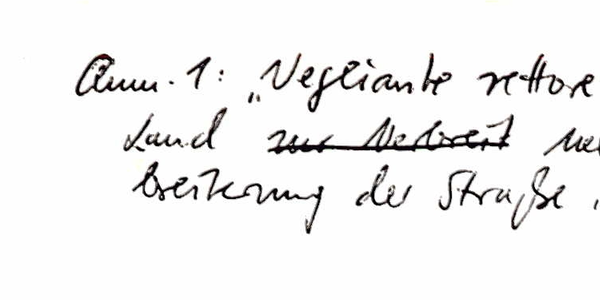 Anm. 1: „Negliante rettore
Land zur Verbreit
breiterung der Straße